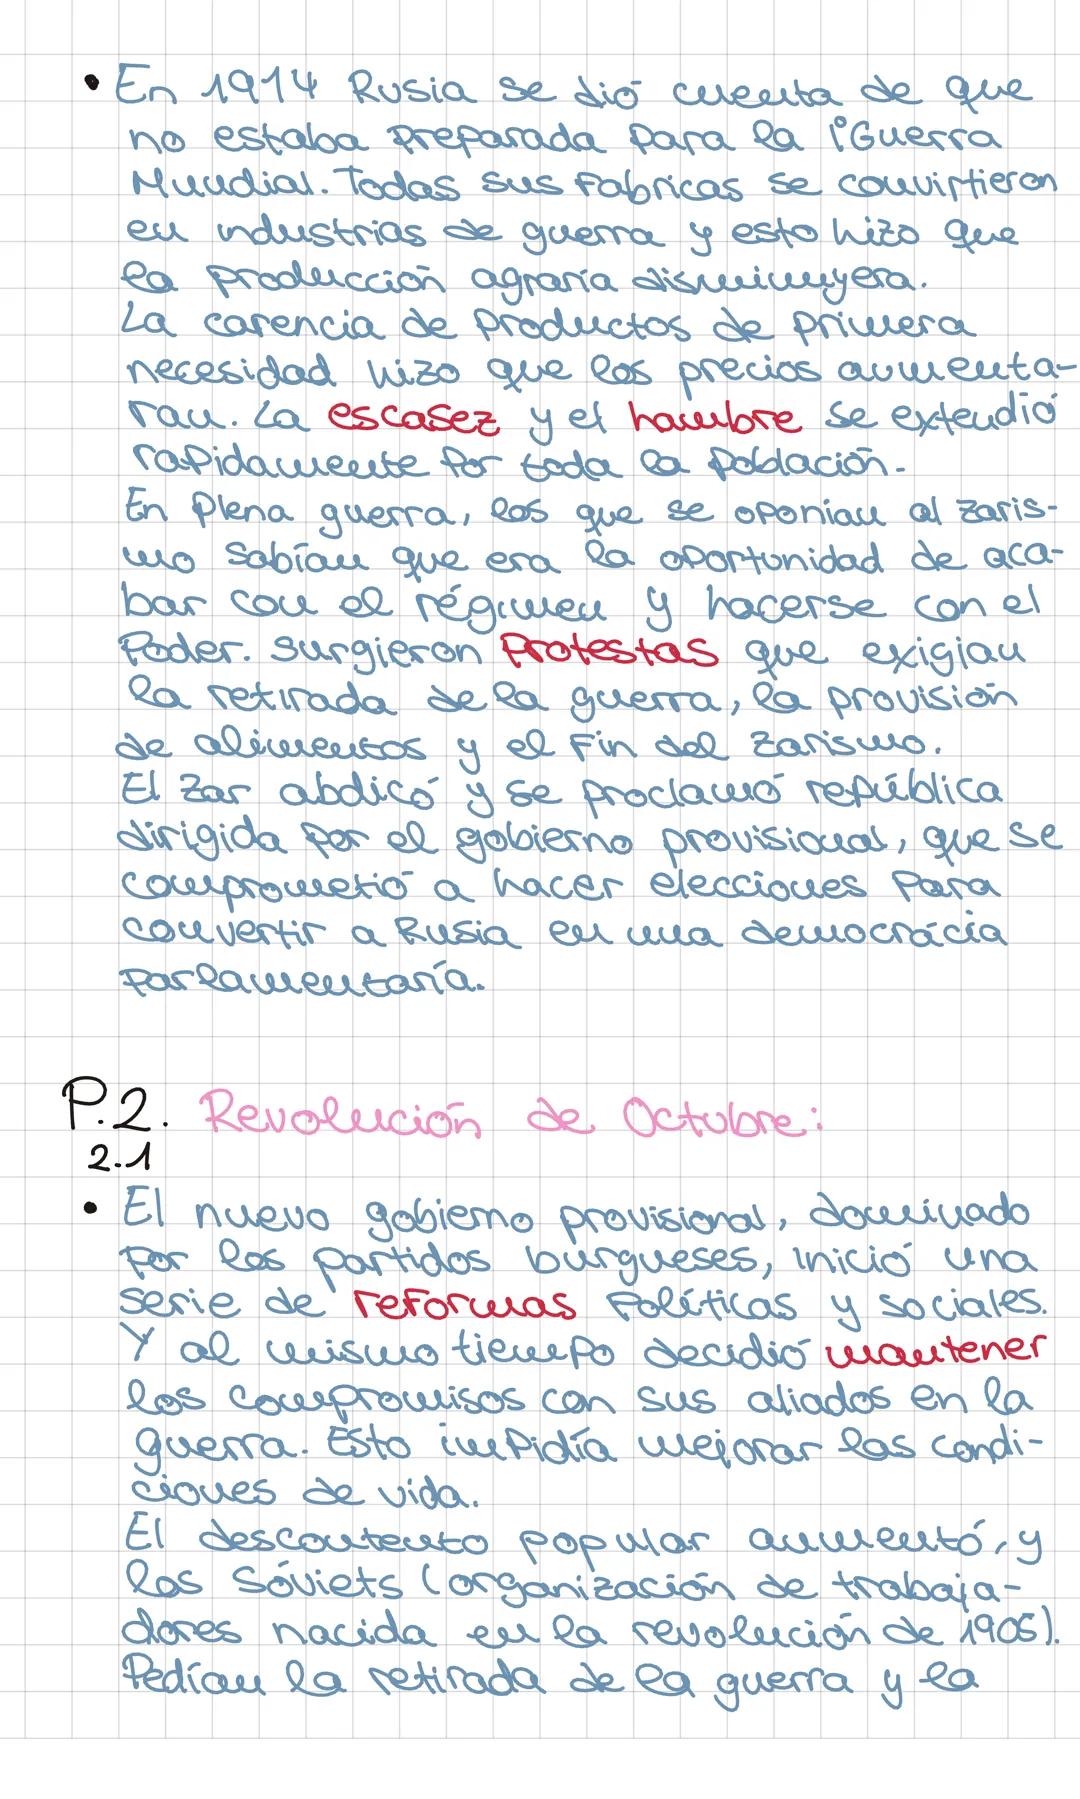 • En 1914 Rusia se dió cuenta de que
no estaba preparada para la 1ºGuerra
Mundial. Todas sus fabricas se convirtieron
en industrias de guerra y esto hizo que
la producción agraría disminuyera.
La carencia de productos de primera
necesidad hizo que los precios aumenta-
ran. La escasez y el hambre se extendió
rapidamente por toda la población.
En plena guerra, los que se oponían al zaris-
mo sabían que era la oportunidad de aca-
bar con el régimen y hacerse con el
poder. Surgieron protestas que exigían
la retirada de la guerra, la provisión
de alimentos y el fin del zarismo.
El zar abdicó y se proclamó república
dirigida por el gobierno provisional, que se
comprometió a hacer elecciones para
convertir a Rusia en una democrácia
parlamentaría.
P.2. Revolución de Octubre:
2.1
• El nuevo gobierno provisional, dominado
por los partidos burgueses, inició una
serie de reformas políticas y sociales.
Y al mismo tiempo decidió mantener
los compromisos con sus aliados en la
guerra. Esto impidía mejorar las condi-
ciones de vida.
El descontento popular aumentó, y
los Sóviets (organización de trabaja-
dores nacida en la revolución de 1905).
Pedían la retirada de la guerra y la